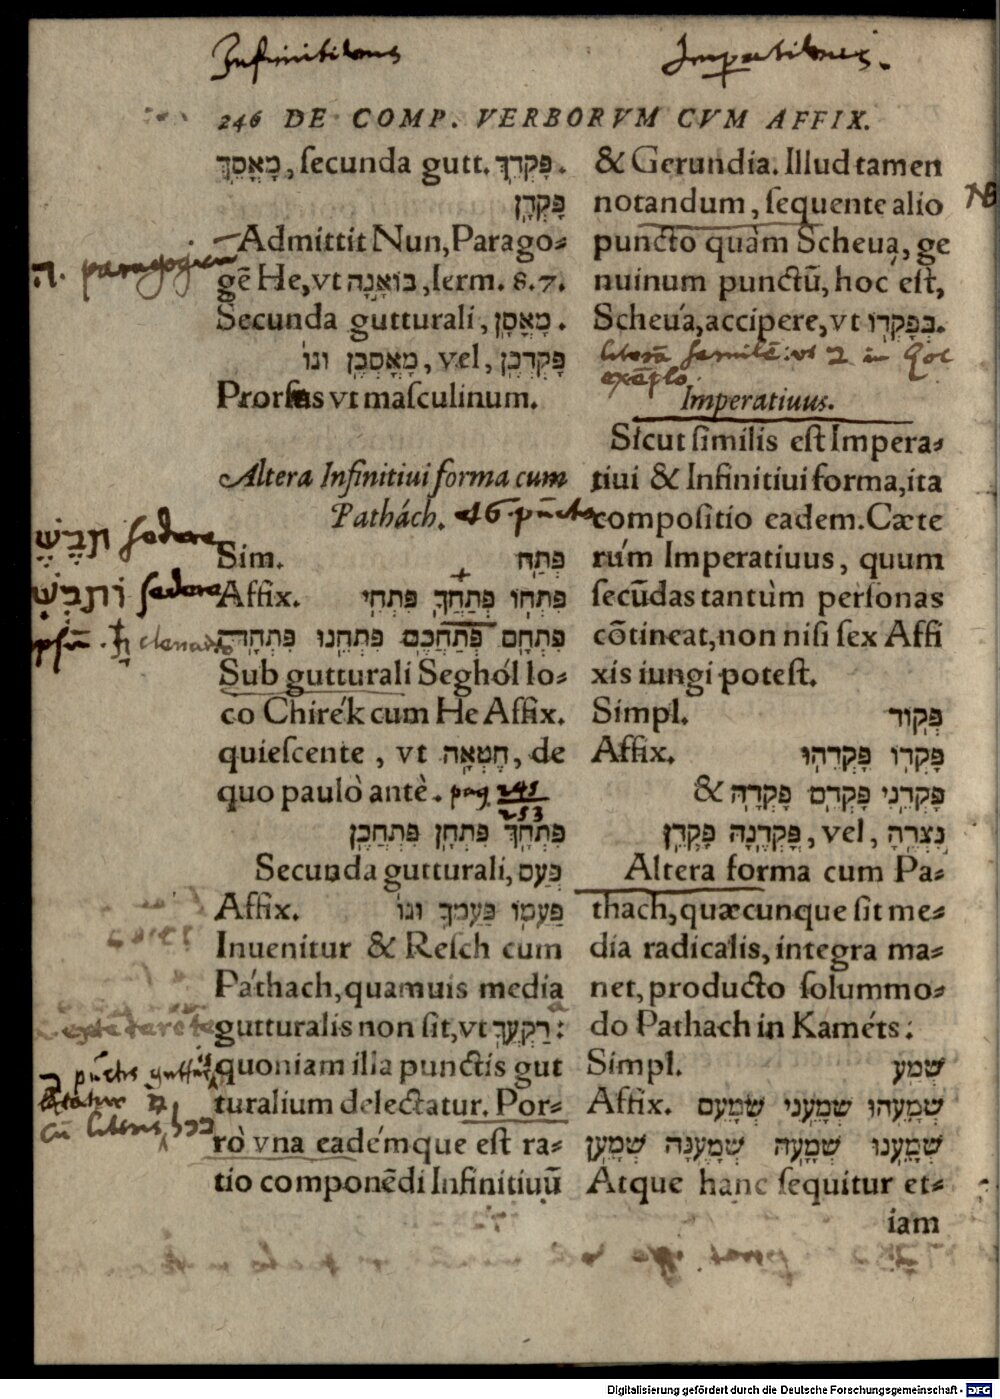 Infinitiuus
Imperatiuus.
246 DE COMP. VERBORVM CVM AFFIX.
מָאֳסֵךְ, ſecunda gutt. פָּקְדֵךְ.
פָּקְדָן
Admittit Nun, Parago-
gē He, vt בוֹאָנָה, Ierm. 8.7.
Secunda gutturali, מָאֳסָן.
פָּקְדְכֶן, vel, מָאֳסְכֶן וגו׳
Prorſus vt maſculinum.
Altera Infinitiui forma cum
Pathách.
Sim. פְּתַח
Affix. פִּתְחוֹ פִּתְחֲךָ פִּתְחִי
פִּתְחָם פִּתְחֲכֶם פִּתְחֵנוּ פִּתְחָהּ
Sub gutturali Seghól lo-
co Chirék cum He Affix.
quieſcente, vt חֶטְאָה, de
quo paulò antè. pag 245
253
פִּתְחֵךְ פִּתְחָן פִּתְחֲכֶן
Secunda gutturali, בְּעַם
Affix. פַּעֲמוֹ פַּעַמְךָ וגו׳
Inuenitur & Reſch cum
Páthach, quamuis media
gutturalis non ſit, vt רַקְעֲךָ:
quoniam illa punctis gut
turalium delectatur. Por-
rò vna eadémque eſt ra-
tio componēdi Infinitiuū
& Gerundia. Illud tamen
notandum, ſequente alio
puncto quàm Scheua, ge
nuinum punctū, hoc eſt,
Scheúa, accipere, vt בְּפָקְדוֹ.
Imperatiuus.
Sicut ſimilis eſt Impera-
tiui & Infinitiui forma, ita
compoſitio eadem. Cæte
rúm Imperatiuus, quum
ſecūdas tantùm perſonas
cōtineat, non niſi ſex Affi
xis iungi poteſt.
Simpl. פְּקוֹד
Affix. פָּקְדוֹ פָּקְדֵהוּ
פָּקְדֵנִי פָּקְדֵם פָּקְדָהּ &
נִצְּרֶהָ, vel, פָּקְדֶנָּה פָּקְדֵן
Altera forma cum Pa-
thach, quæcunque ſit me-
dia radicalis, integra ma-
net, producto ſolummo-
do Pathach in Kaméts:
Simpl. שְׁמַע
Affix. שְׁמָעֵהוּ שְׁמָעֵנִי שְׁמָעֵם
שְׁמָעֵנוּ שְׁמָעָהּ שְׁמָעֶנָּה שְׁמָעֵן
Atque hanc ſequitur et-
iam
NB
ה. paragogicum
literā ſimilē: vt ב in Qol
exēplo.
46. pūcto
שֶׁבֶת ſedere
Digitalisierung gefördert durch die Deutsche Forschungsgemeinschaft - DFG